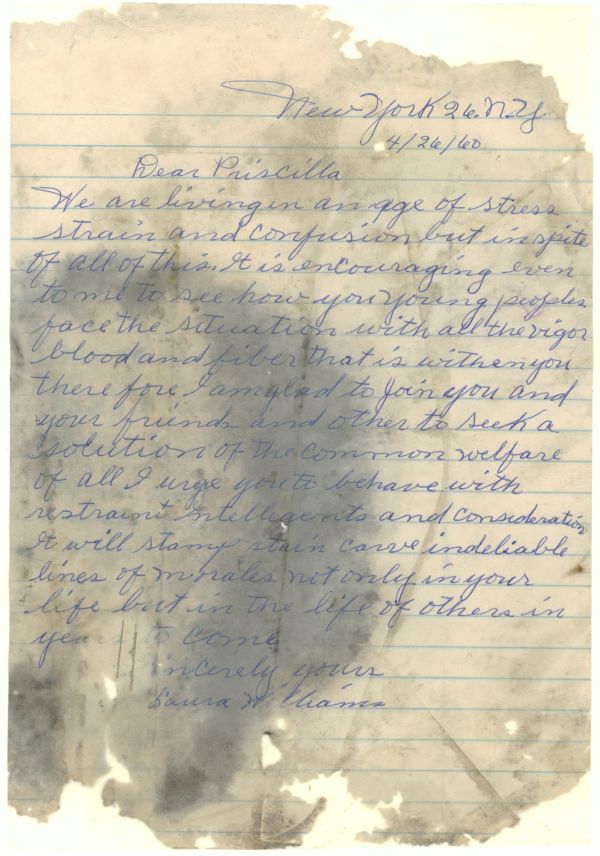 New York 26. N.Y
4/26/60
Dear Priscilla
We are living in an age of stress
strain and confusion but in spite
of all of this. It is encouraging even
to me to see how you young peoples
face the situation with all the vigor
blood and fiber that is withen you
there fore I am glad to join you and
your friends and other to seek a
solution of the common welfare
of all I urge you to behave with
restraint intelligents and consideration
It will stamp stain carve indeliable
lines of morales not only in your
life but in the life of others in
years to come
incerely yours
Laura Williams